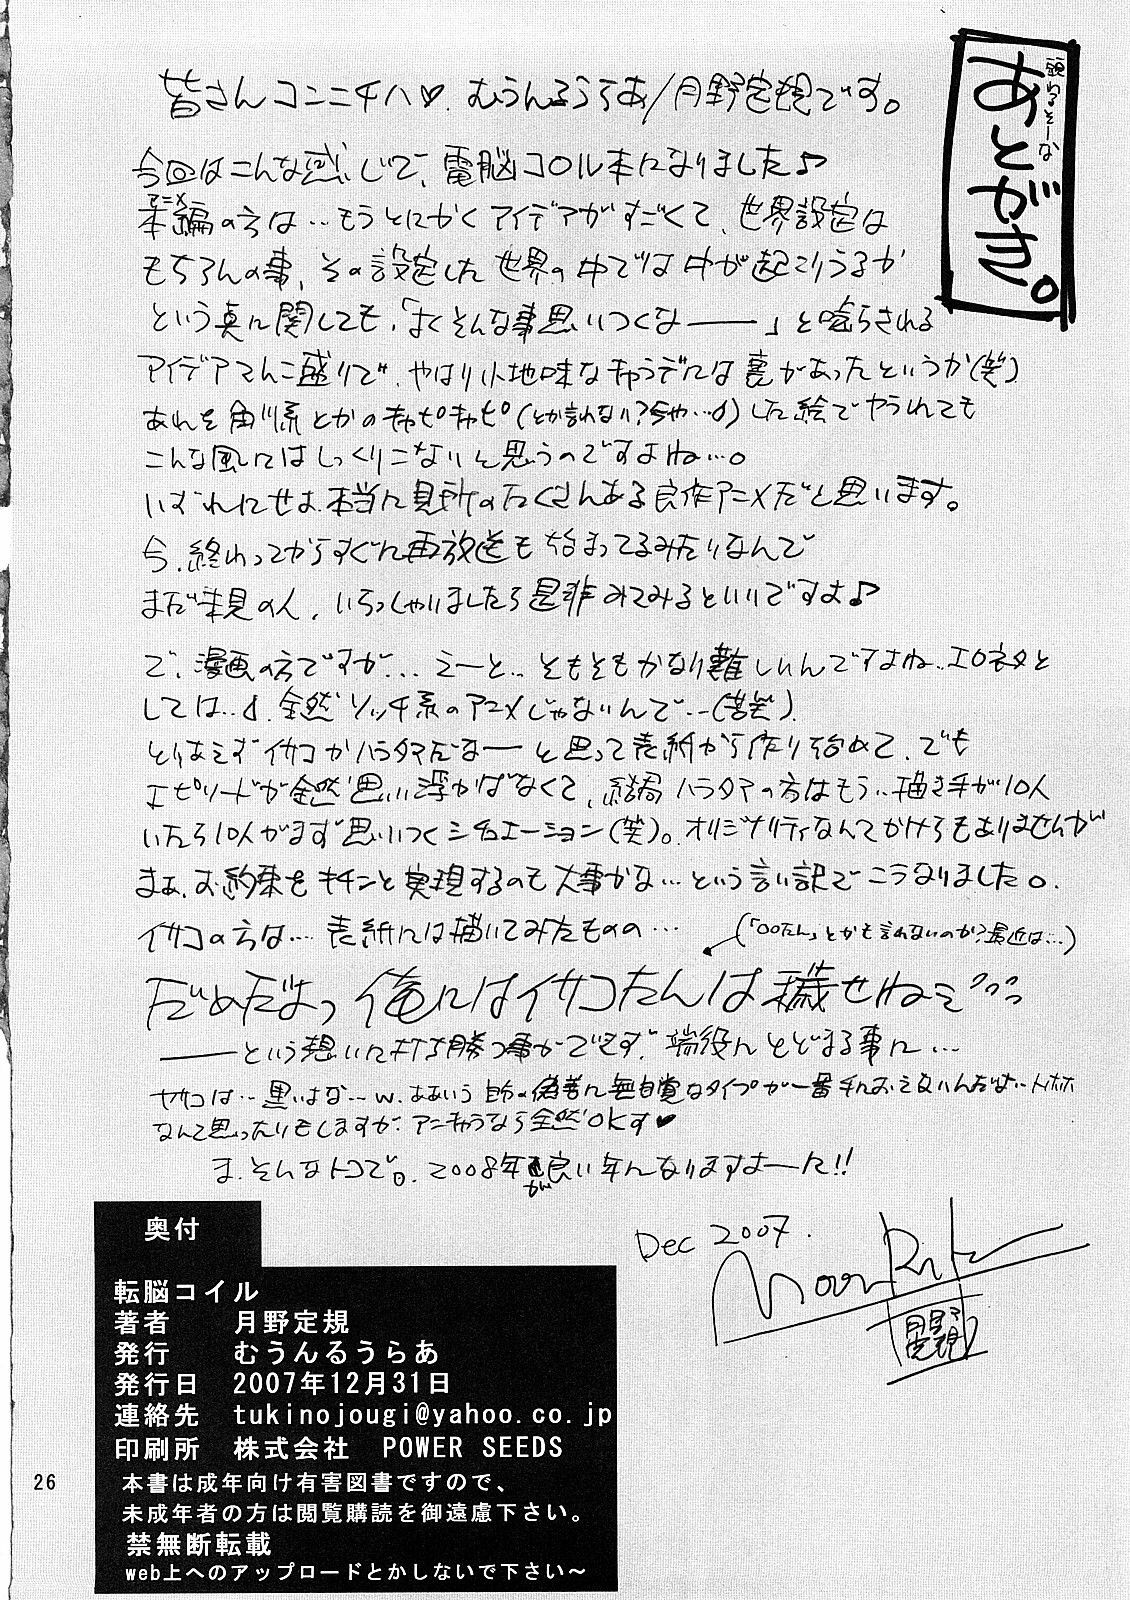 頭わるそーな
あとがき。
皆さんコンニチハ♡.むうんるうらあ/月野定規です。
今回はこんな感じで、電脳コイル本になりました♪
アニメ
本編の方は…もうとにかくアイデアがすごくて、世界設定は
もちろんの事、その設定した世界の中では何が起こりうるか
という点に関しても、「よくそんな事思いつくなー」と唸らされる
アイデアてんこ盛りで、やはり小地味なキャラデには裏があったというか(笑)
あれを角川系とかのキャピキャピ(とか言わない?もちゃ…♪)した絵でやられても
こんな風にはしっくりこないと思うのですよね…。
いずれにせよ、本当に見所のたくさんある良作アニメだと思います。
今、終わってからすぐに再放送も始まってるみたいなんで
まだ未見の人、いらっしゃいましたら是非みてみるといいですよ♪
で、漫画の方ですが…えーと…そもそもかなり難しいんですよね…エロネタと
しては…♪.全然ソッチ系のアニメじゃないんで…(苦笑).
とりあえずイサコかハラケンだなーと思って表紙から作り始めて、でも
エピソードが全然思い浮かばなくて、結局ハラケンの方はもう…描き手が10人
いたら10人がまず思いつくシチュエーション(笑)。オリジナリティなんてかけらもありませんが
まぁ、お約束をキチンと実現するのも大事かな…という言い訳でこうなりました。
イサコの方は…表紙には描いてみたものの…
(「○○たん」とかも言わないのか?最近は…)
だめだよっ俺にはイサコたんは穢せねぇ
――という想いに打ち勝つ事ができず、端役にとどまる事に…
ヤサコは…黒いよな…w.ああいう自分の偽善に無自覚なタイプが一番手におえないんだよ…トホホ
なんて思ったりもしますが、アニキャラなら全然OKす♥
ま、そんなトコで。2008年が良い年になりますよーに!!
Dec 2007.
月野定規
奥付
転脳コイル
著者 月野定規
発行 むうんるうらあ
発行日 2007年12月31日
連絡先 tukinojougi@yahoo.co.jp
印刷所 株式会社 POWER SEEDS
本書は成年向け有害図書ですので、
未成年者の方は閲覧購読を御遠慮下さい。
禁無断転載
web上へのアップロードとかしないで下さい～
26